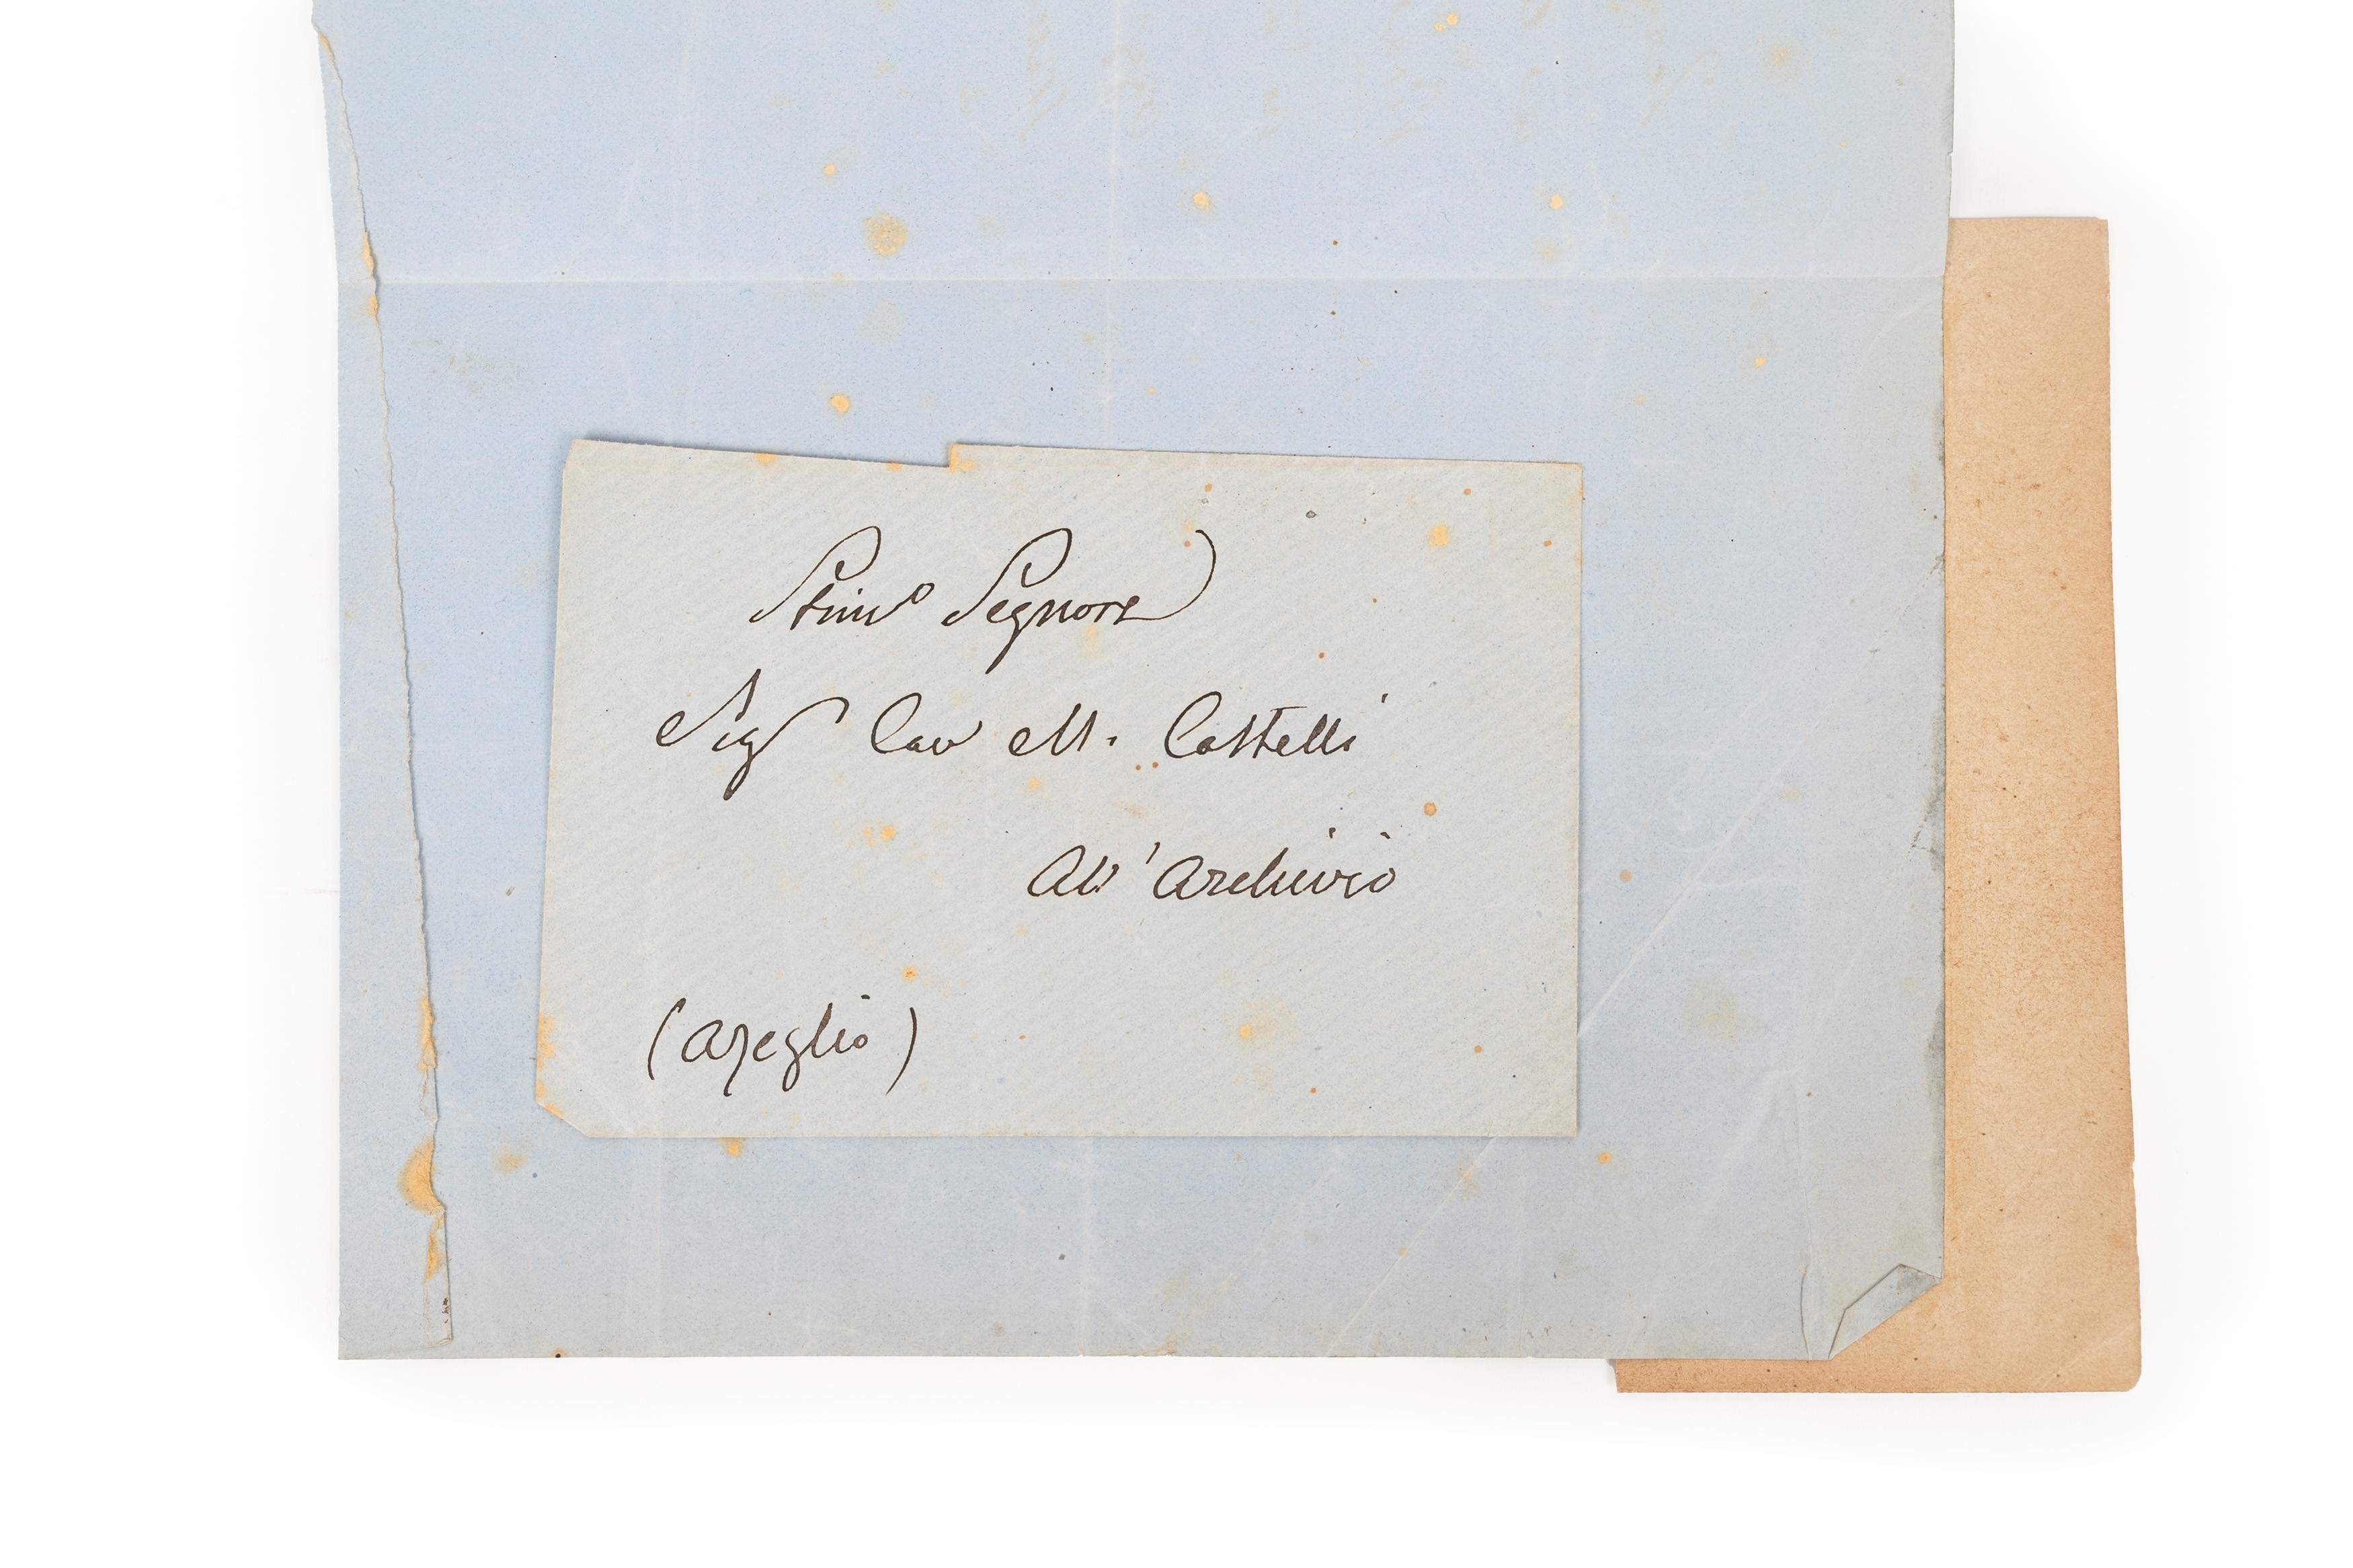 Stimo Signore
Sigr Cav M. Castelli
All' Archivio
(Azeglio)